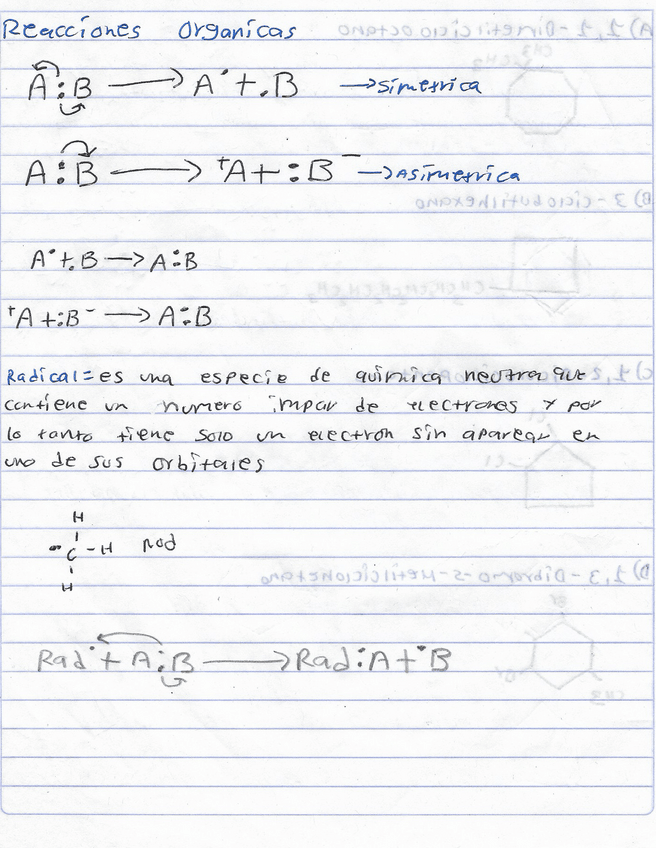 Reacciones Organicas
A:B → A· + .B → Simetrica
A:B → ⁺A + :B⁻ → Asimetrica
A· + .B → A:B
⁺A + :B⁻ → A:B
Radical = es una especie de quimica neutra que
contiene un numero impar de electrones y por
lo tanto tiene solo un electron sin aparear en
uno de sus orbitales
H
C - H Rad
H
Rad· + A:B → Rad:A + ·B